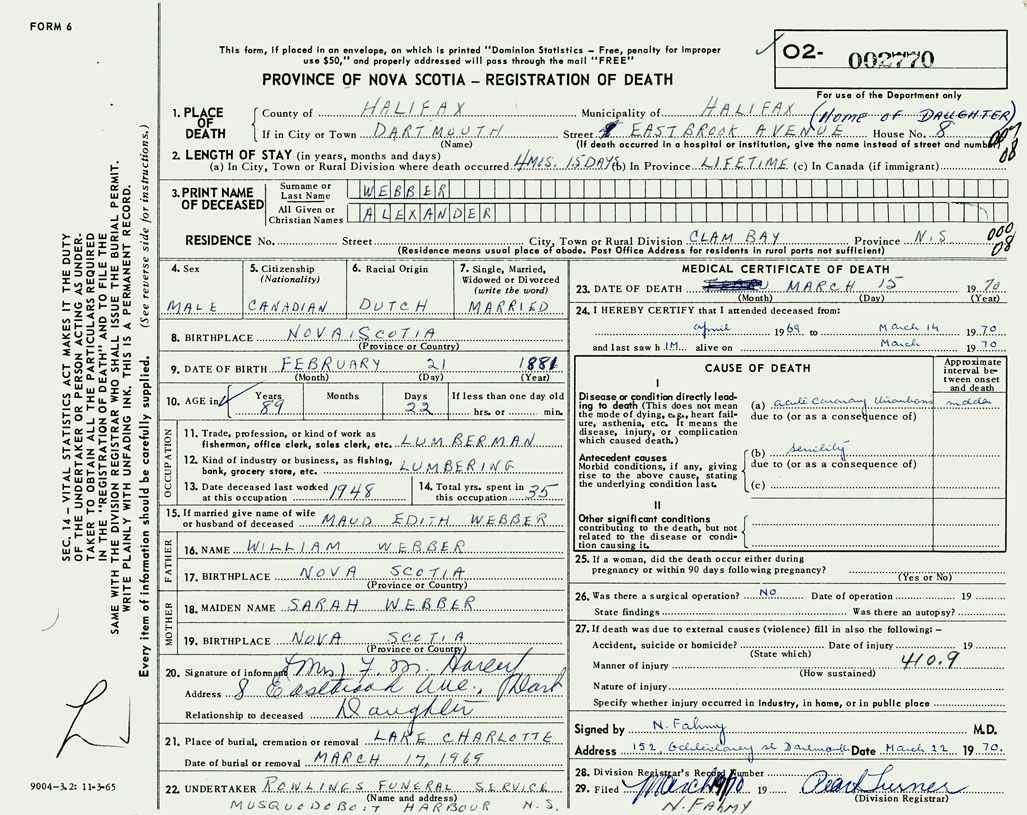 FORM 6
This form, if placed in an envelope, on which is printed "Dominion Statistics – Free, penalty for improper
use $50," and properly addressed will pass through the mail "FREE"
02- 002770
PROVINCE OF NOVA SCOTIA – REGISTRATION OF DEATH
For use of the Department only
1. PLACE OF DEATH
County of HALIFAX Municipality of HALIFAX (HOME OF DAUGHTER)
If in City or Town DARTMOUTH Street EASTBROOK AVENUE House No. 8
(Name) (If death occurred in a hospital or institution, give the name instead of street and number)
007
08
2. LENGTH OF STAY (in years, months and days)
(a) In City, Town or Rural Division where death occurred 4MOS. 15DAYS (b) In Province LIFETIME (c) In Canada (if immigrant)
3. PRINT NAME OF DECEASED
Surname or Last Name WEBBER
All Given or Christian Names ALEXANDER
RESIDENCE No. Street City, Town or Rural Division CLAM BAY Province N.S.
(Residence means usual place of abode. Post Office Address for residents in rural parts not sufficient)
000
08
4. Sex MALE
5. Citizenship (Nationality) CANADIAN
6. Racial Origin DUTCH
7. Single, Married, Widowed or Divorced (write the word) MARRIED
8. BIRTHPLACE NOVA SCOTIA
(Province or Country)
9. DATE OF BIRTH FEBRUARY 21 1881
(Month) (Day) (Year)
10. AGE in Years 89 Months Days 22 If less than one day old hrs. or min.
OCCUPATION
11. Trade, profession, or kind of work as fisherman, office clerk, sales clerk, etc. LUMBERMAN
12. Kind of industry or business, as fishing, bank, grocery store, etc. LUMBERING
13. Date deceased last worked at this occupation 1948
14. Total yrs. spent in this occupation 35
15. If married give name of wife or husband of deceased MAUD EDITH WEBBER
FATHER
16. NAME WILLIAM WEBBER
17. BIRTHPLACE NOVA SCOTIA
(Province or Country)
MOTHER
18. MAIDEN NAME SARAH WEBBER
19. BIRTHPLACE NOVA SCOTIA
(Province or Country)
20. Signature of informant (Mrs) F. M.
Address 8 Ave., Dart
Relationship to deceased Daughter
21. Place of burial, cremation or removal LAKE CHARLOTTE
Date of burial or removal MARCH 17, 1969
22. UNDERTAKER ROWLINGS FUNERAL SERVICE
(Name and address)
MUSQUODOBOIT HARBOUR N.S.
MEDICAL CERTIFICATE OF DEATH
23. DATE OF DEATH MARCH 15 1970
(Month) (Day) (Year)
24. I HEREBY CERTIFY that I attended deceased from:
april 1969 to March 14 1970
and last saw h IM alive on March 1970
CAUSE OF DEATH
Approximate interval between onset and death
I
Disease or condition directly leading to death (This does not mean the mode of dying, e.g., heart failure, asthenia, etc. It means the disease, injury, or complication which caused death.)
(a) acute Coronary thrombosis sudden
due to (or as a consequence of)
Antecedent causes
Morbid conditions, if any, giving rise to the above cause, stating the underlying condition last.
(b) senility
due to (or as a consequence of)
(c)
II
Other significant conditions
contributing to the death, but not related to the disease or condition causing it.
25. If a woman, did the death occur either during pregnancy or within 90 days following pregnancy?
(Yes or No)
26. Was there a surgical operation? NO Date of operation 19
State findings Was there an autopsy?
27. If death was due to external causes (violence) fill in also the following: –
Accident, suicide or homicide? Date of injury 19
(State which)
Manner of injury 410.9
(How sustained)
Nature of injury
Specify whether injury occurred in industry, in home, or in public place
Signed by N. Fahmy M.D.
Address 152, st Dartmouth Date March 22 1970.
28. Division Registrar's Record Number
29. Filed March 19 Pearl Turner
(Division Registrar)
N. FAHMY
SEC. 14 – VITAL STATISTICS ACT MAKES IT THE DUTY
OF THE UNDERTAKER OR PERSON ACTING AS UNDER-
TAKER TO OBTAIN ALL THE PARTICULARS REQUIRED
IN THE "REGISTRATION OF DEATH" AND TO FILE THE
SAME WITH THE DIVISION REGISTRAR WHO SHALL ISSUE THE BURIAL PERMIT.
WRITE PLAINLY WITH UNFADING INK. THIS IS A PERMANENT RECORD.
Every item of information should be carefully supplied. (See reverse side for instructions.)
9004-3.2: 11-3-65